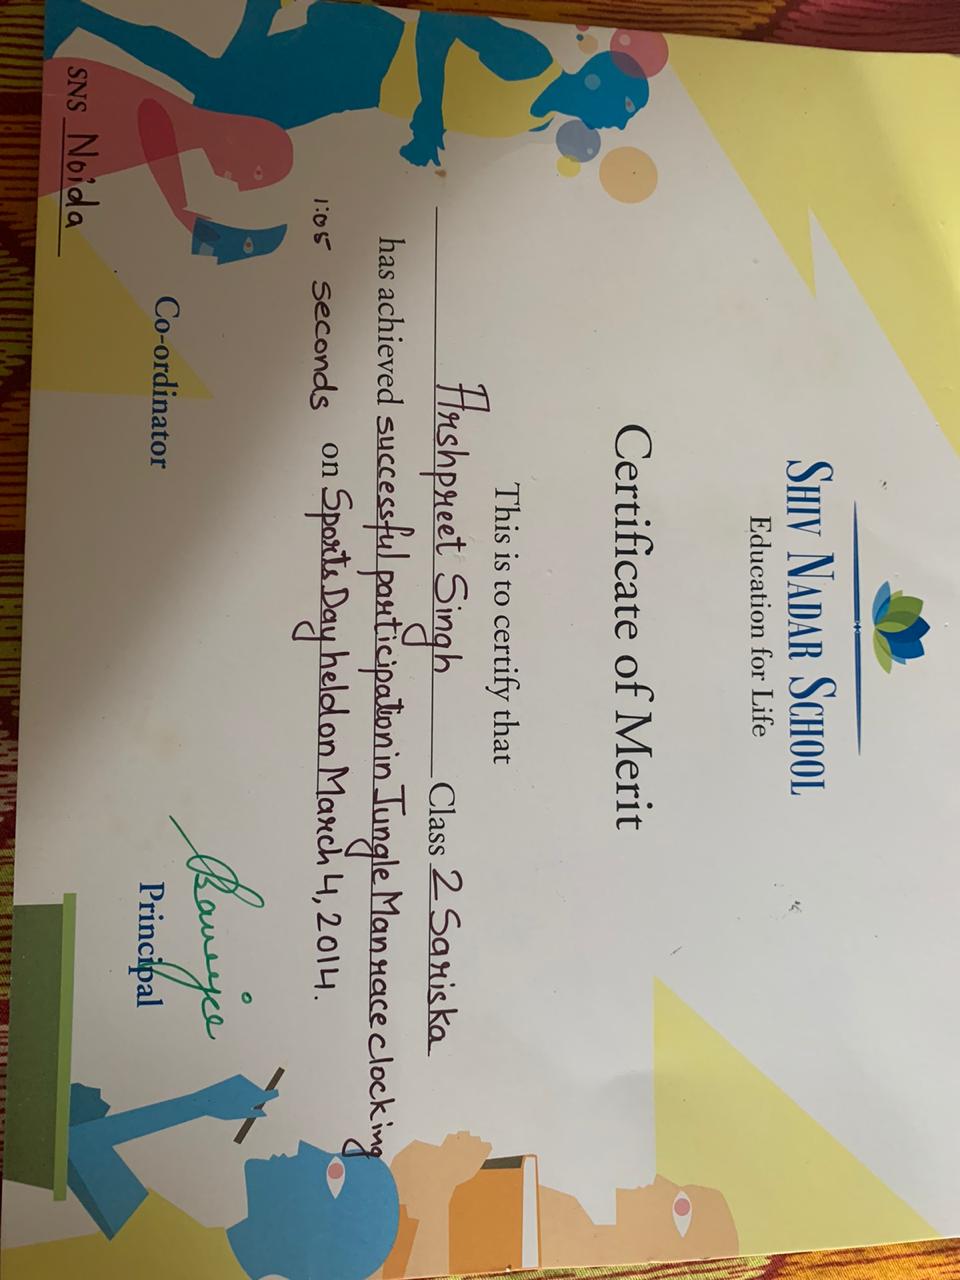 SHIV NADAR SCHOOL
Education for Life
Certificate of Merit
This is to certify that
Arshpreet Singh Class 2 Sariska
has achieved successful participation in Jungle Man race clocking
1:05 seconds on Sports Day held on March 4, 2014.
Banerjee
Co-ordinator Principal
SNS Noida